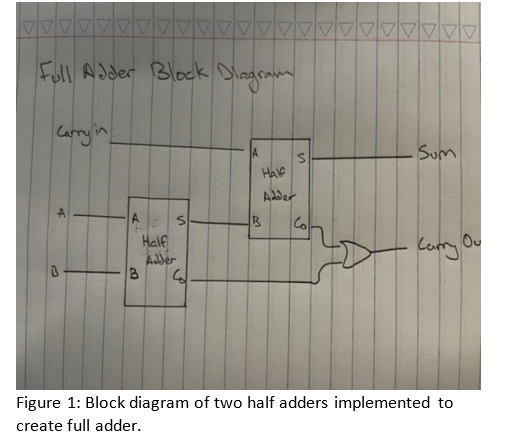 Full Adder Block Diagram
Carry in
A
S
Sum
Half
Adder
B
Co
A
A
S
Half
Adder
B
B
Co
Carry Ou
Figure 1: Block diagram of two half adders implemented to
create full adder.